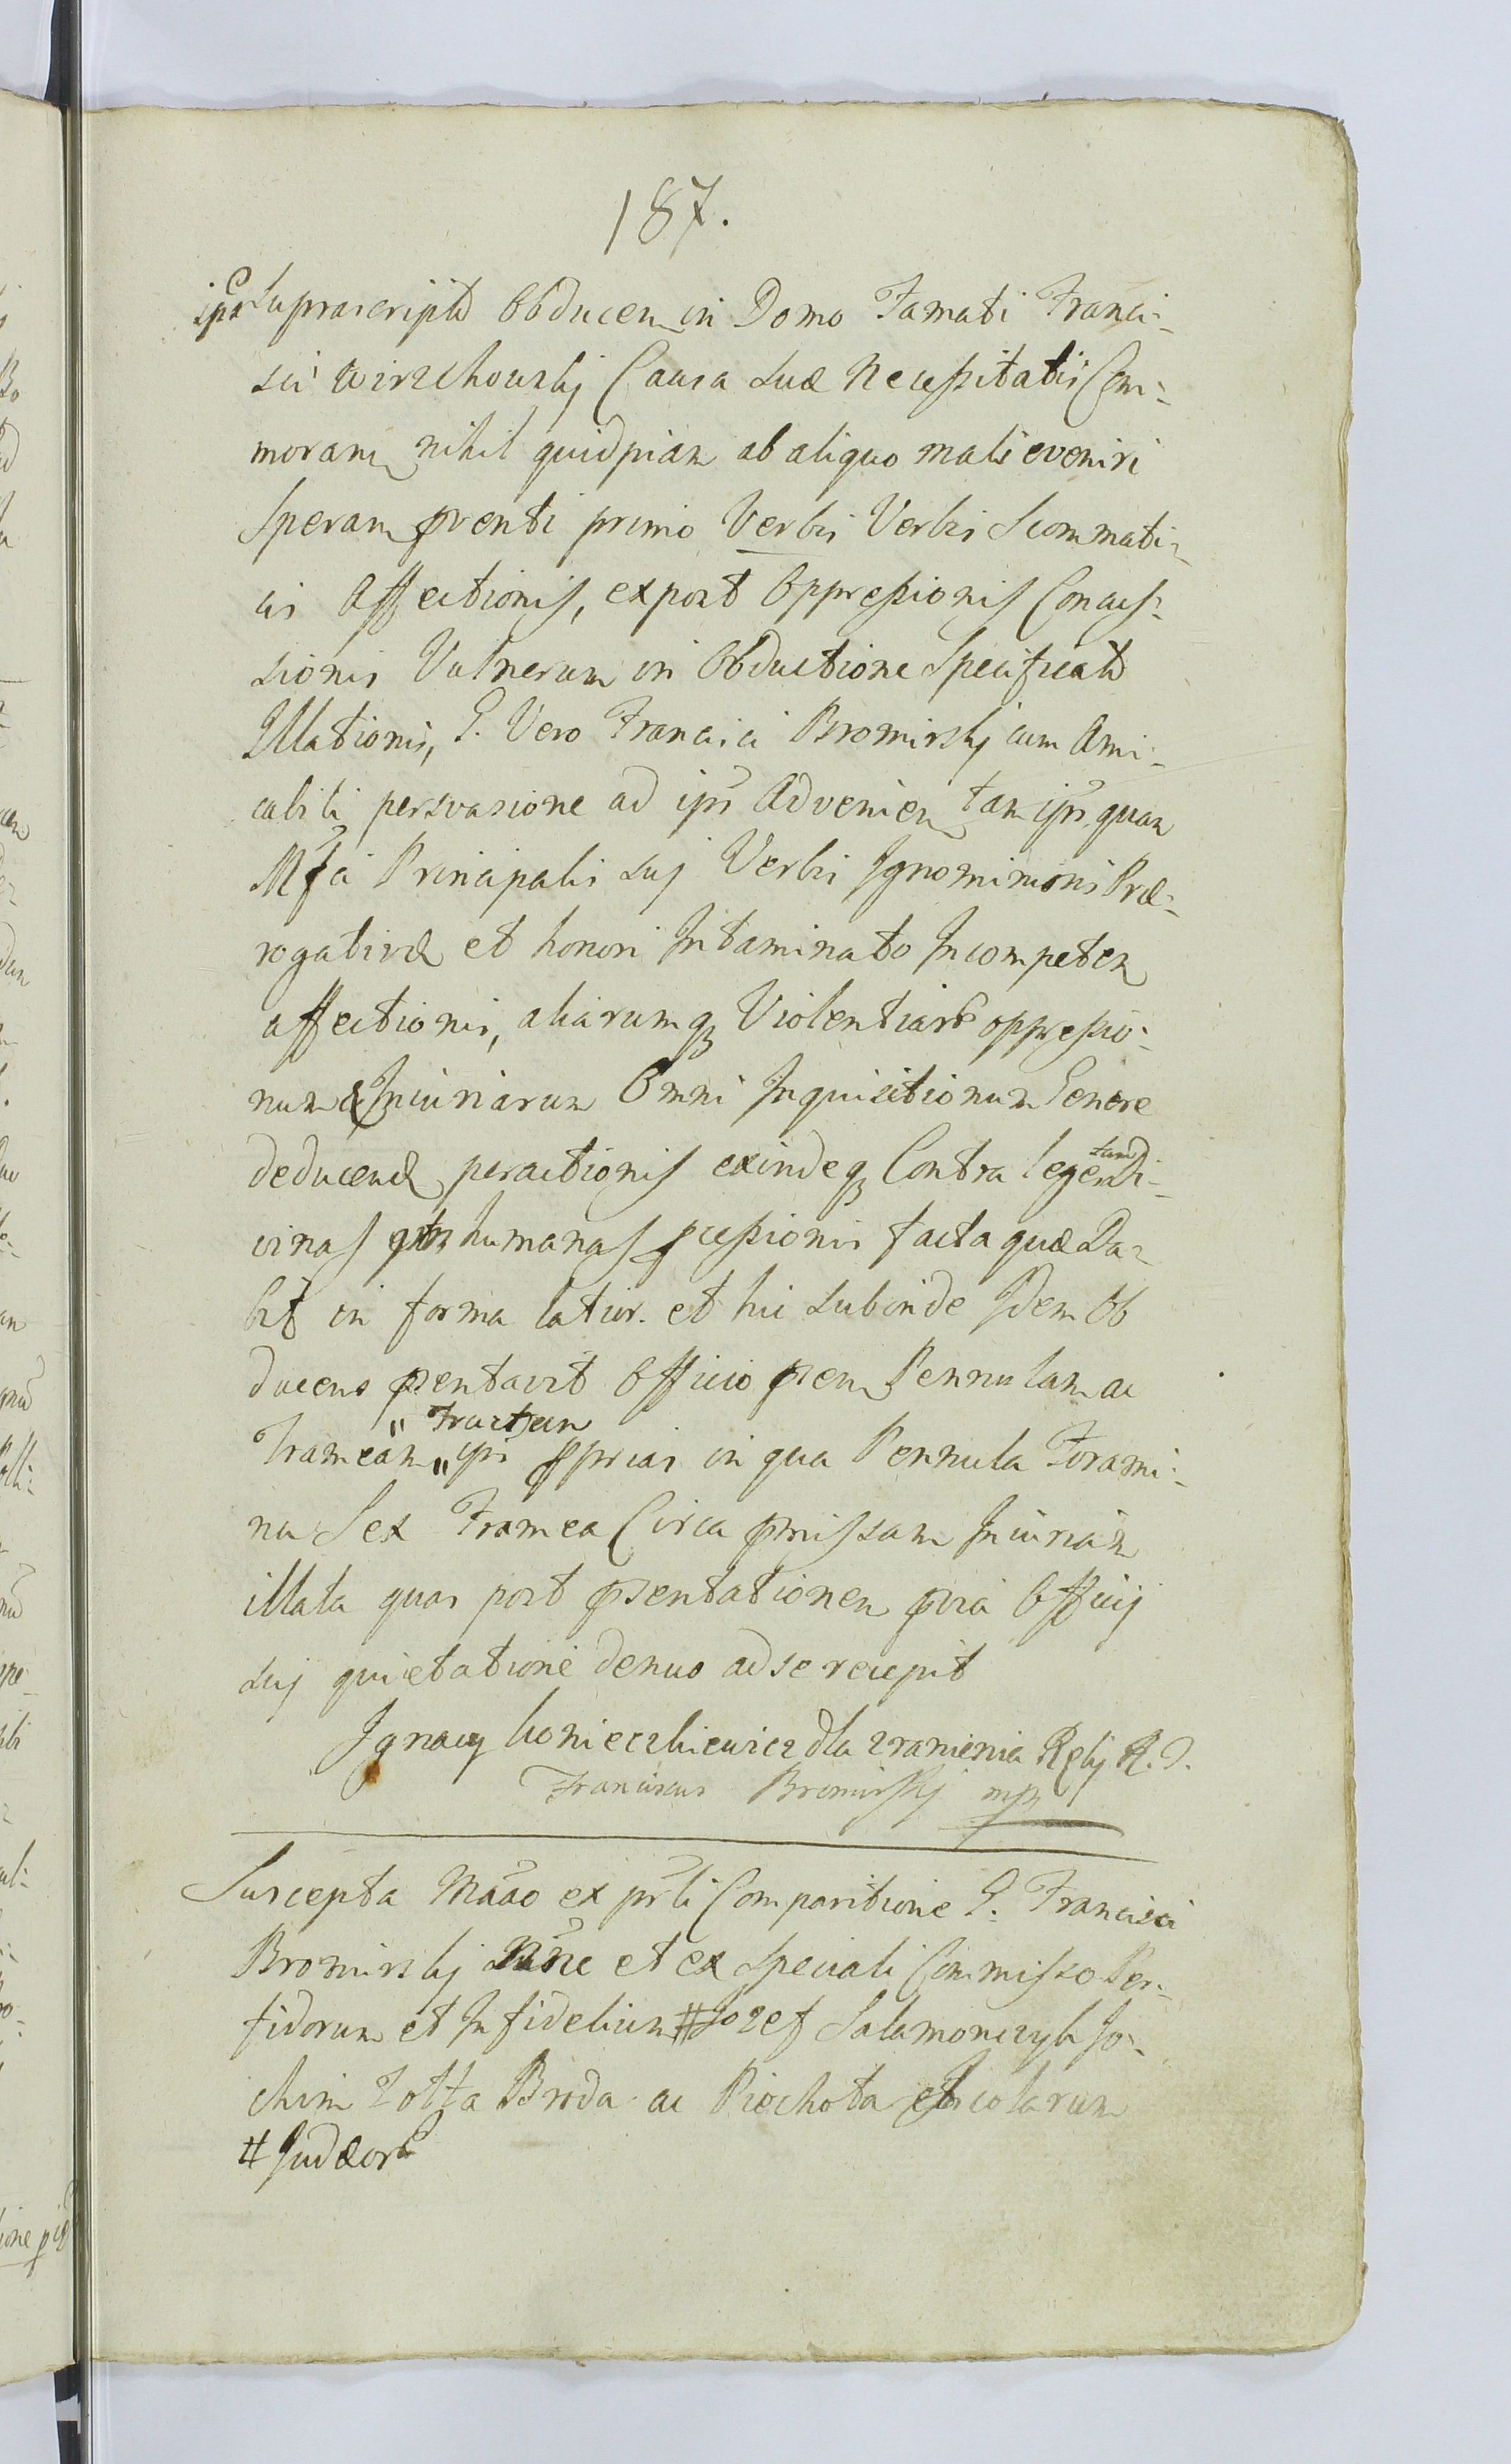 187.
ips Suprascripta Obducen in Domo Famati Franci-
sci Wirzchowskj Causa Suæ Necessitatis Com-
moran nihil quidpiam ab aliquo mali eveniri
Speran pventi primo Verbis Verbis Scommati-
cis Affectionis, ex post Oppressionis Concus-
sionis Vulnerum in Obductione Specificat
Illationis, G. Vero Francisci Bromirskj cum Ami-
cabili persvasione ad ips Advenien tam ips quam
Mfci Principalis Suj Verbis Ignominiosis Præ-
rogativæ et honori Intaminato Incompeten
affectionis, aliarumq Violentiar oppressio-
num & Iniuriarum Omni Inquisitionum Genere
deducend peractionis exindeq Contra leges tam Di-
vinas qm humanas pcessionis facta quæ Da-
bit in forma latior. et hic Subinde Idem Ob
ducens psentavit Officio psen Pennulam ac
Frameam "Fractam" ips pprias in qua Pennula Forami-
na Sex Framea Circa pmissam Iniuriam
illata quas post psentationem pvia Officij
Suj quietatione denuo ad se recepit
Ignacy Konieczkiewicz dla zranienia Ręki R. D.
Franciscus Bromirskj mp
Suscepta Mãao ex prsli Comparitione G. Francisci
Bromirskj Nne et ex Speciali Commisso Per-
fidorum et Infidelium # Jozef Salamonczyk Jo-
chim Zołta Broda ac Piechota Incolarum
# Judæor